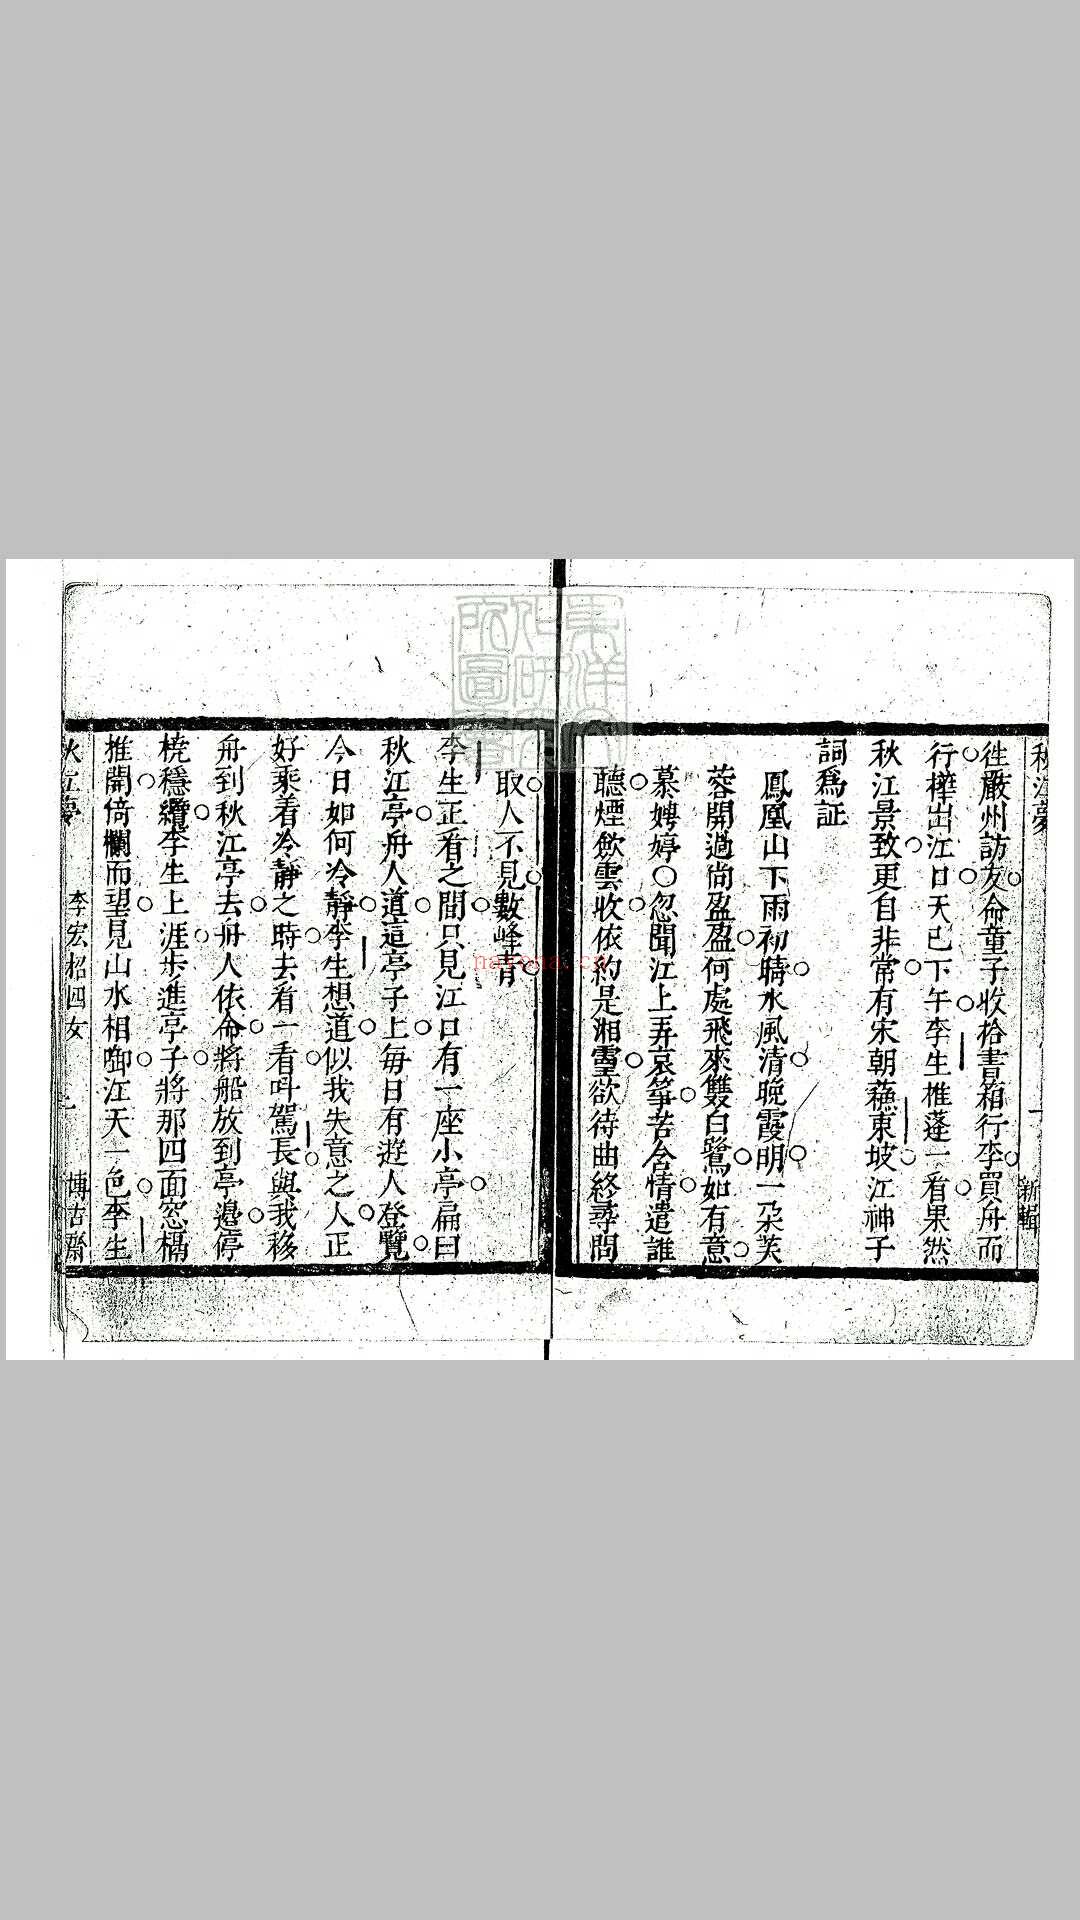 秋江夢
一
新輯
徃嚴州訪友命童子收拾書箱行李買舟而
行樺出江口天已下午李生推蓬一看果然
秋江景致更自非常有宋朝蘓東坡江神子
詞爲証
鳳凰山下雨初晴水風清晚霞明一朶芙
蓉開過尚盈盈何處飛來雙白鷺如有意
慕娉婷○忽聞江上弄哀筝苦含情遣誰
聽煙歛雲收依約是湘靈欲待曲終尋問
取人不見數峰青
李生正看之間只見江口有一座小亭扁曰
秋江亭舟人道這亭子上每日有遊人登覽
今日如何冷靜李生想道似我失意之人正
好乘着冷靜之時去看一看呌駕長與我移
舟到秋江亭去舟人依命將船放到亭邉停
橈穩纜李生上涯步進亭子將那四面窓槅
推開倚欄而望見山水相啣江天一色李生
秋江夢
李宏招四女
博古齋
東洋文化研究所圖書
nayona.cn